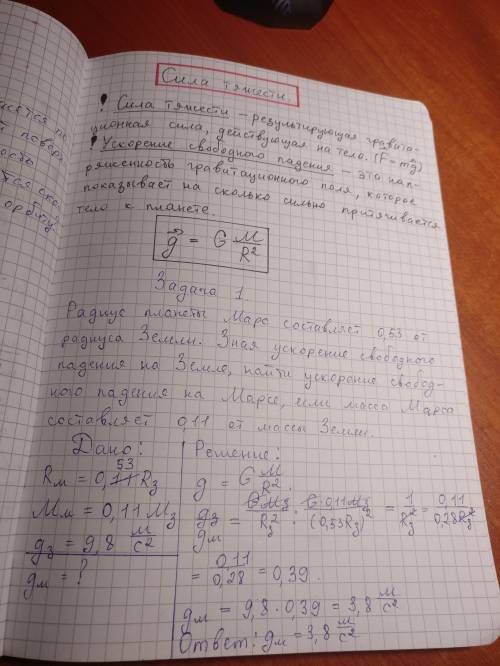 Сила тяжести.
! Сила тяжести – результирующая гравита-
ционная сила, действующая на тело. (F = mg)
! Ускорение свободного падения – это нап-
ряженность гравитационного поля, которое
показывает на сколько сильно притягивается
тело к планете.
g = G M/R²
Задача 1
Радиус планеты Марс составляет 0,53 от
радиуса Земли. Зная ускорение свободного
падения на Земле, найти ускорение свобод-
ного падения на Марсе, если масса Марса
составляет 0,11 от массы Земли.
Дано:
53
Rм = 0,11 Rз
Mм = 0,11 Mз
gз = 9,8 м/с²
gм = ?
Решение:
g = G M/R².
gз/gм = GMз/Rз² : G·0,11Mз/(0,53Rз)² = 1/Rз² = 0,11/0,28Rз² =
= 0,11/0,28 = 0,39.
gм = 9,8 · 0,39 = 3,8 м/с²
Ответ: gм = 3,8 м/с²
орбиту